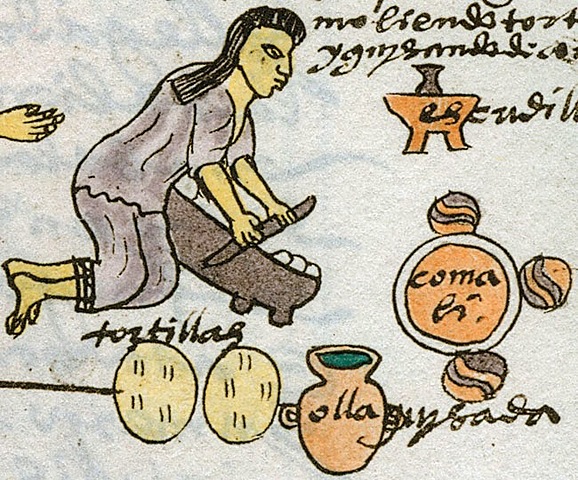 moliendo tort
y guisando de co
escudill
comali.
tortillas
olla guysada